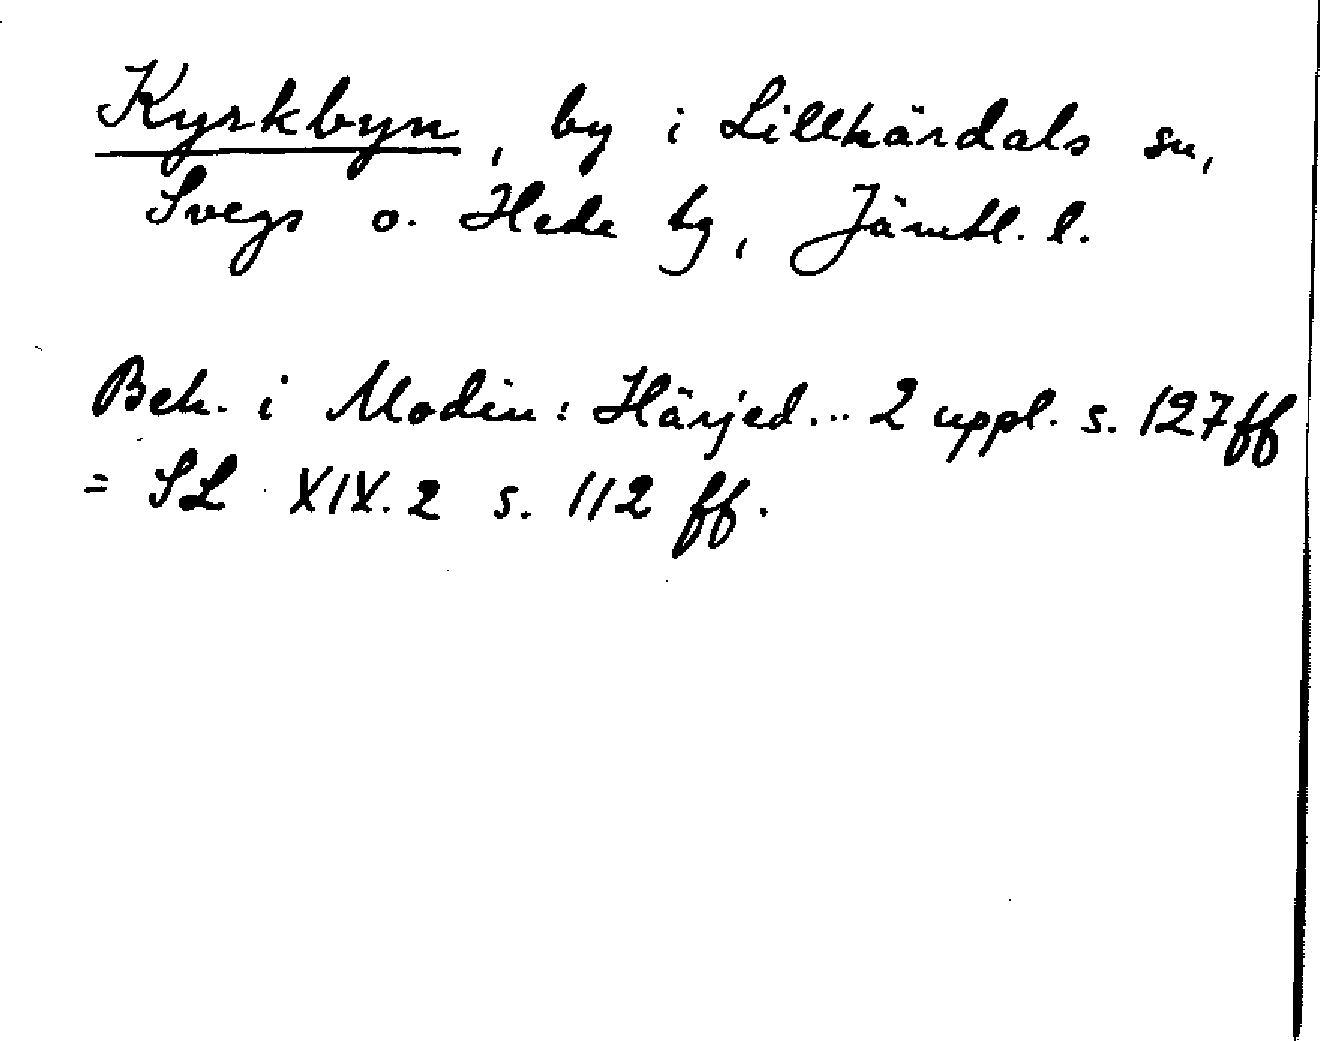 Kyrkbyn, by i Lillhärdals sn,
Svegs o. Hede tg, Jämtl. l.
Beh. i Modin: Härjed... 2 uppl. s. 127 ff
= SL XIX.2 s. 112 ff.